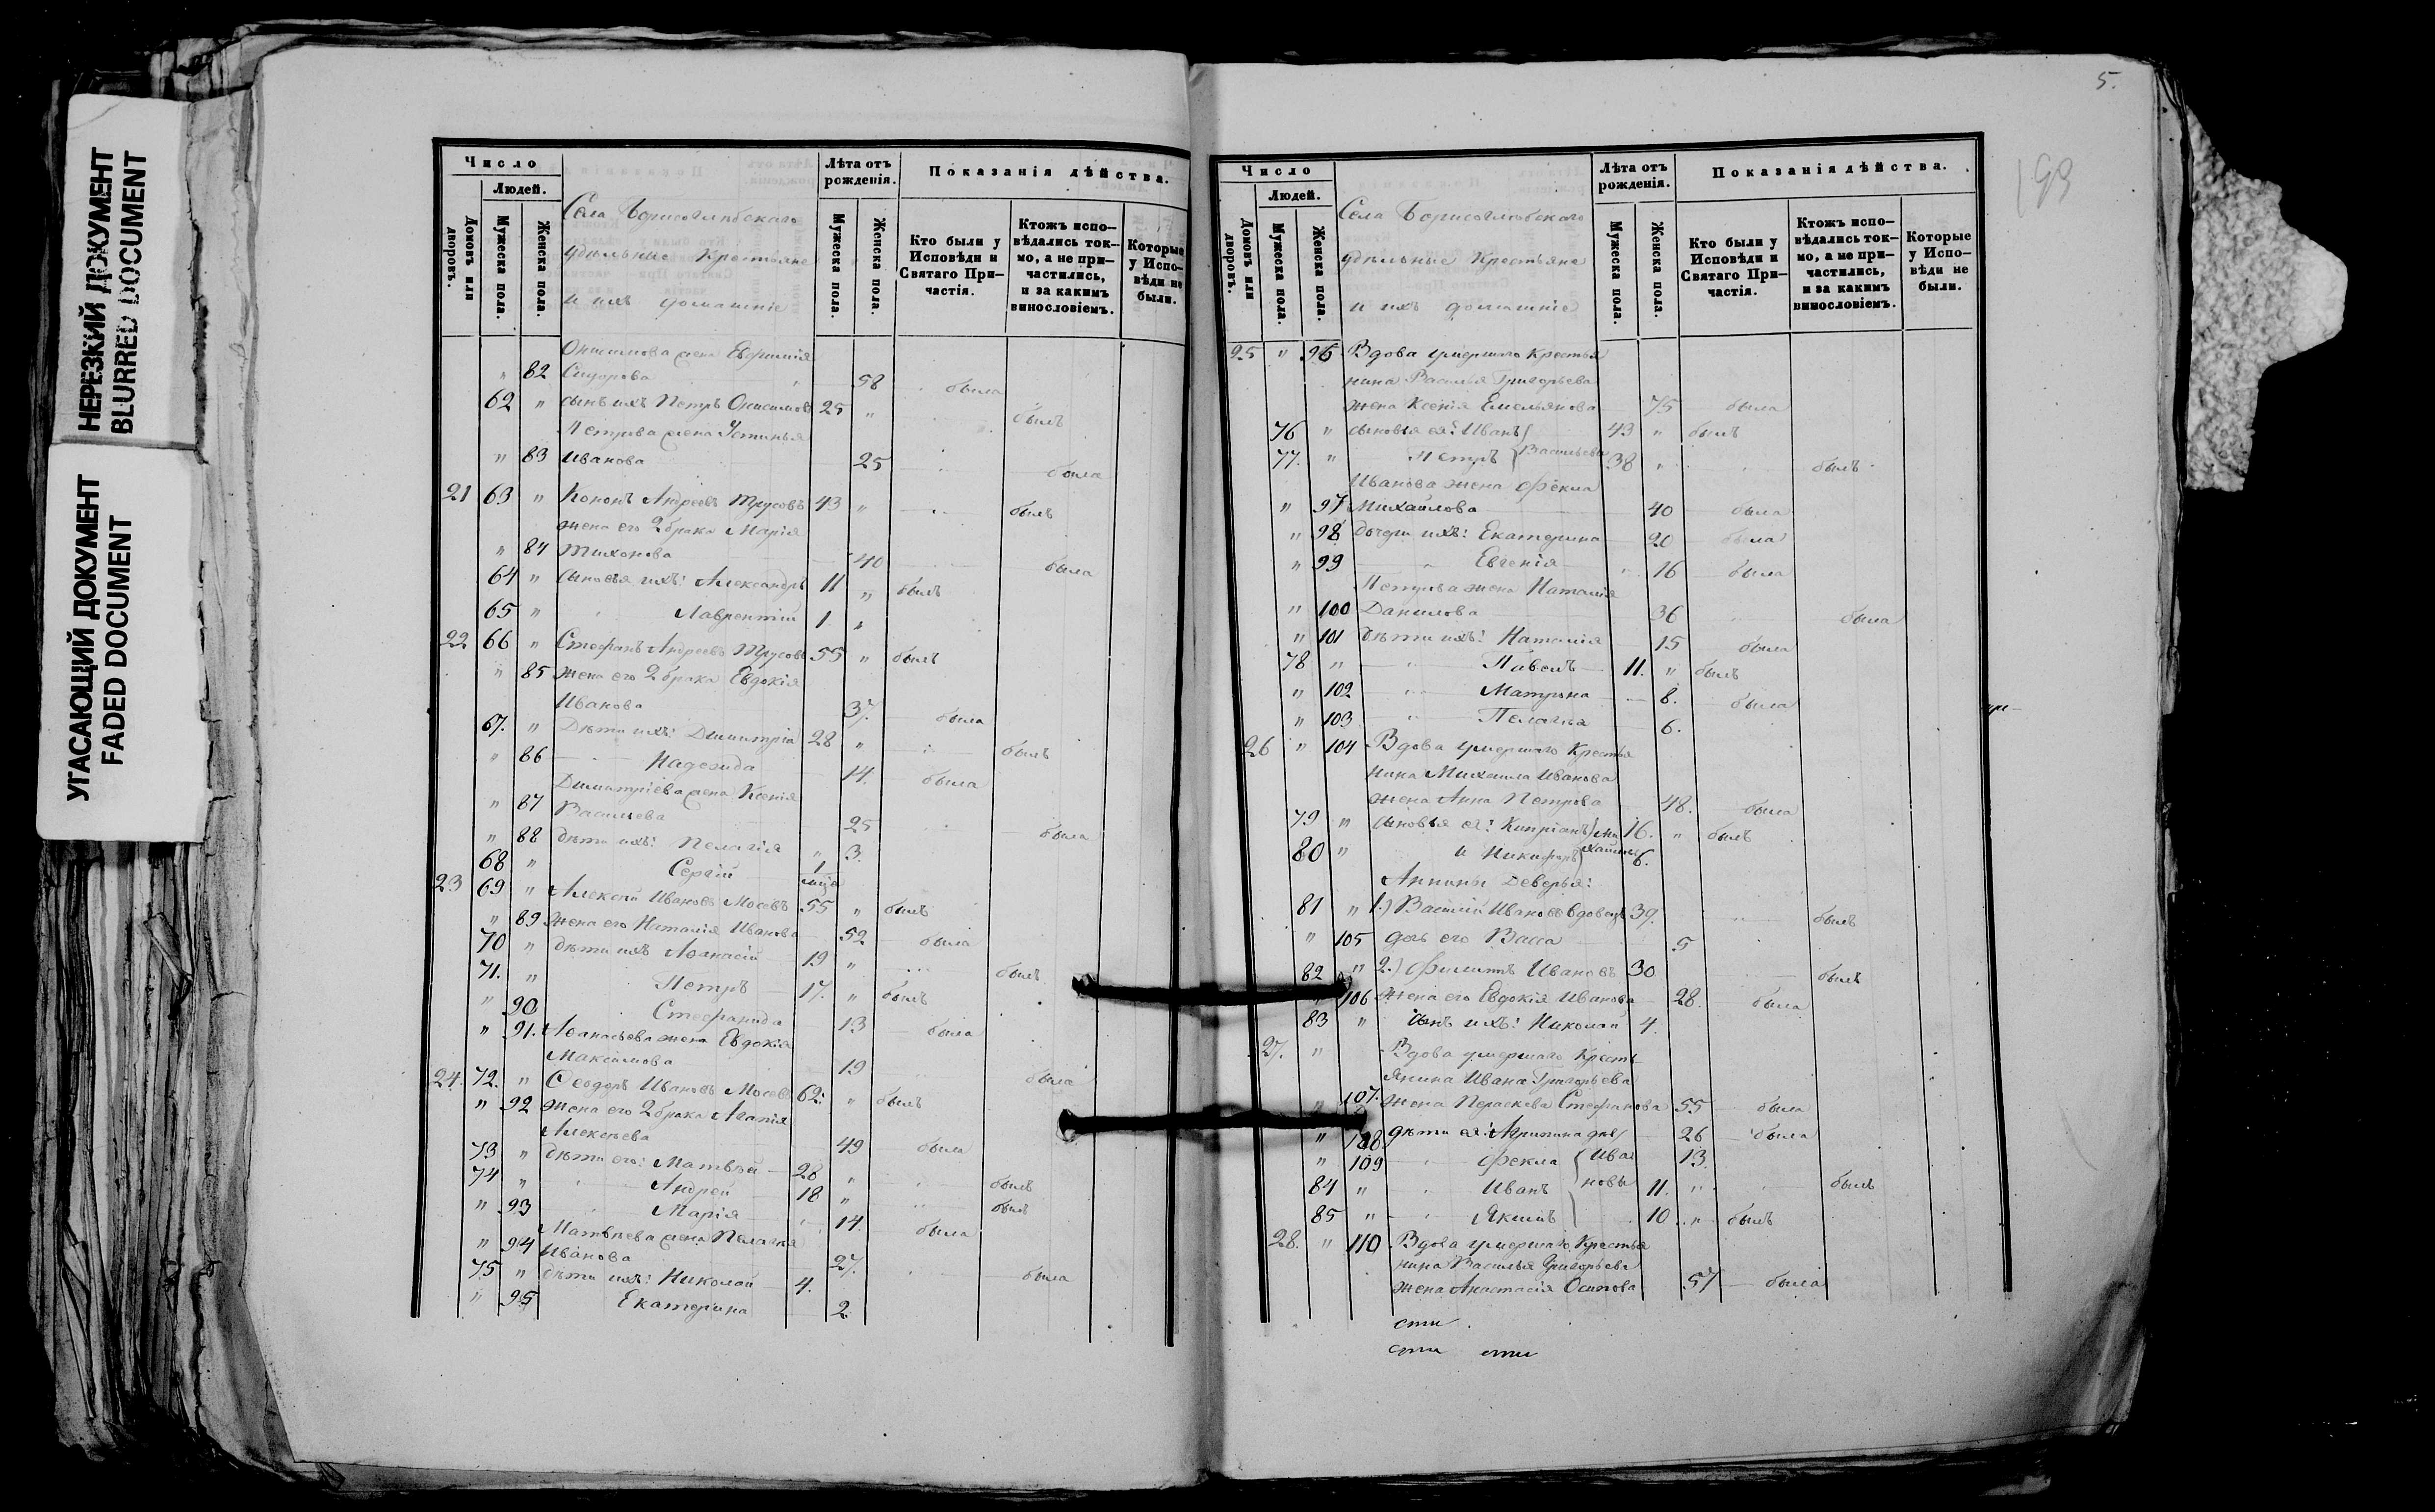 НЕРЕЗКИЙ ДОКУМЕНТ
BLURRED DOCUMENT
УГАСАЮЩИЙ ДОКУМЕНТ
FADED DOCUMENT
Число
Людей.
Домовъ или дворовъ.
Мужеска пола.
Женска пола.
Села Борисоглѣбскаго
удѣльные Крестьяне
и ихъ домашніе
Лѣта отъ рожденія.
Мужеска пола.
Женска пола.
Показанія дѣйства.
Кто были у Исповѣди и Святаго Причастія.
Ктожъ исповѣдались токмо, а не причастились, и за какимъ винословіемъ.
Которые у Исповѣди не были.
Онисимова жена Евфимія
" 82 Сидорова 58 была
62 " сынъ ихъ Петръ Онисимовъ 25 " былъ
Петрова жена Устинья
" 83 Иванова 25 была
21 63 " Кононъ Андреевъ Трусовъ 43 " былъ
жена его 2 брака Марія
" 84 Тихонова 40 была
64 " сыновья ихъ: Александръ 11 " былъ
65 " " Лаврентій 1 "
22 66 " Стефанъ Андреевъ Трусовъ 55 " былъ
" 85 жена его 2 брака Евдокія
Иванова 37. была
67. " Дѣти ихъ: Димитрій 28 " былъ
" 86 Надежда 14. была
Димитріева жена Ксенія
" 87 Васильева 25 была
" 88 дѣти ихъ: Пелагія " 3.
68 " Сергій 1 мца
23 69 " Алексѣй Ивановъ Мосевъ 55 " былъ
" 89 жена его Наталія Иванова 52 была
70 " дѣти ихъ Аѳанасій 19 " былъ
71. " Петръ 17. " былъ
" 90 Стефанида 13 была
" 91. Аѳанасьева жена Евдокія
Максимова 19 была
24. 72. " Ѳеодоръ Ивановъ Мосевъ 62. " былъ
" 92 жена его 2 брака Агапія
Алексѣева 49 была
73 " дѣти его: Матвѣй 28 " былъ
74 " " Андрей 18 " былъ
" 93 " Марія " 14. была
Матвѣева жена Пелагея
" 94 Иванова 27. была
75 " дѣти ихъ: Николай 4.
" 95 Екатерина 2.
5.
199
Число
Людей.
Домовъ или дворовъ.
Мужеска пола.
Женска пола.
Села Борисоглѣбскаго
удѣльные Крестьяне
и ихъ домашніе
Лѣта отъ рожденія.
Мужеска пола.
Женска пола.
Показанія дѣйства.
Кто были у Исповѣди и Святаго Причастія.
Ктожъ исповѣдались токмо, а не причастились, и за какимъ винословіемъ.
Которые у Исповѣди не были.
25 " 96 Вдова умершаго Крестья
нина Василья Григорьева
жена Ксенія Емельянова 75 была
76 " сыновья ея: Иванъ 43 " былъ
77. " Петръ Васильевы 38 " былъ
Иванова жена Фекла
" 97 Михайлова 40 была
" 98 дочери ихъ: Екатерина 20 была
" 99 " Евгенія 16 была
Петрова жена Наталія
" 100 Данилова 36 была
" 101 дѣти ихъ: Наталія 15 была
78 " " Павелъ 11. " былъ
" 102 " Матрона 8. была
" 103 " Пелагья 6.
26 " 104 Вдова умершаго Крестья
нина Михаила Иванова
жена Анна Петрова 48. была
79 " сыновья ея: Кипріанъ Ми 16. " былъ
80 " и Никифоръ хайлы 6.
Аннины Деверья:
81 " 1.) Василій Ивановъ вдовецъ 39. былъ
" 105 дочь его Васса 5
82 " 2.) Филиппъ Ивановъ 30 былъ
" 106 жена его Евдокія Иванова 28. была
83 " сынъ ихъ: Николай 4.
27. " Вдова умершаго Кресть
янина Ивана Григорьева
" 107. жена Параскева Стефанова 55 была
" 108. дѣти ея: Агрипина двѣ 26 была
" 109 " Фекла Ива 13.
84 " " Иванъ новы 11. " былъ
85 " " Якимъ 10 " былъ
28. " 110 Вдова умершаго Крестья
нина Василья Григорьева
жена Анастасія Осипова 57 была
сти
сти сти